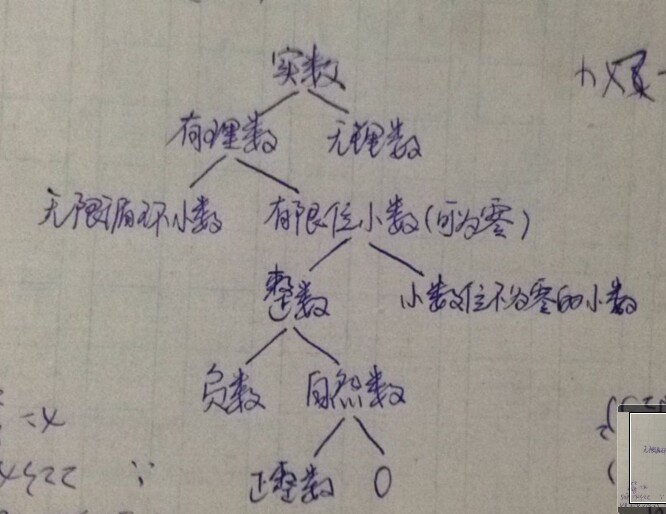 实数
有理数 无理数
无限循环小数 有限位小数(可为零)
整数 小数位不为零的小数
负数 自然数
正整数 0